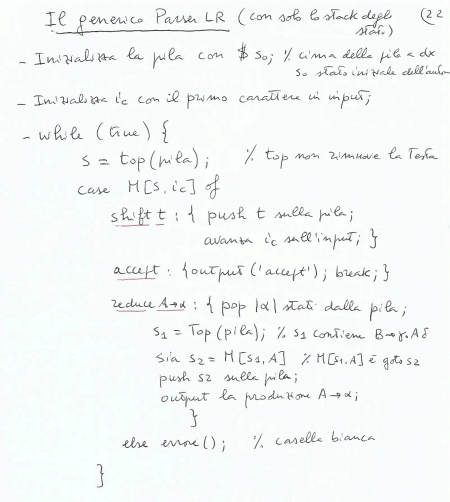 Il generico Parser LR (con solo lo stack degli stati) (22
- Inizializza la pila con $ S0; % cima della pila a dx
S0 stato iniziale dell'automa
- Inizializza ic con il primo carattere in input;
- while (true) {
S = top(pila); % top non rimuove la testa
case M[S, ic] of
shift t : { push t sulla pila;
avanza ic sull'input; }
accept : {output ('accept'); break; }
reduce A→α : { pop |α| stati dalla pila;
S1 = Top(pila); % S1 contiene B→γ.Aδ
Sia S2 = M[S1, A] % M[S1, A] è goto S2
push S2 sulla pila;
output la produzione A→α;
}
else errore(); % casella bianca
}